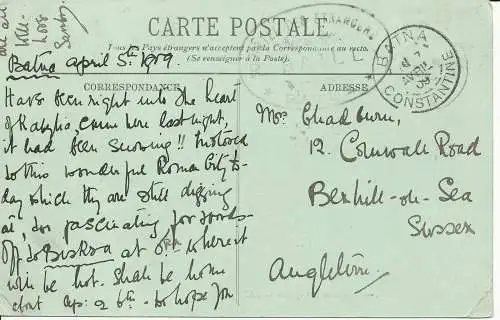 are all
well
love
CARTE POSTALE
Tous les Pays étrangers n'acceptent pas la Correspondance au recto.
(Se renseigner à la Poste).
BATNA
AVRIL
09
CONSTANTINE
Batna April 5th 1909.
CORRESPONDANCE
ADRESSE
Have been right into the heart
of Kabylia, came here last night,
it had been snowing!! Motored
to this wonderful Roman City to-
day which they are still digging
at, too fascinating for words-
Off to Biskra at 5. where it
will be hot. Shall be home
about
to hope you
Mrs Chadburn,
12. Cornwall Road
Bexhill-on-Sea
Sussex
Angleterre